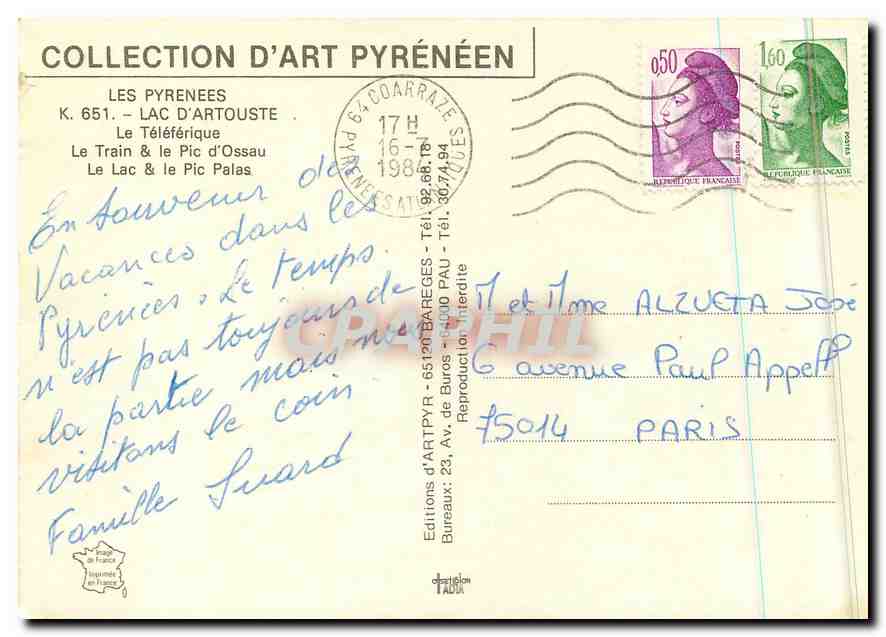 COLLECTION D'ART PYRÉNÉEN
LES PYRENEES
K. 651. - LAC D'ARTOUSTE
Le Téléférique
Le Train & le Pic d'Ossau
Le Lac & le Pic Palas
En souvenir des
Vacances dans les
Pyrénées. Le temps
n'est pas toujours de
la partie mais nous
visitons le coin
Famille Suard
Image
de France
Imprimée
en France
64 COARRAZE
17 H
16-7
198
PYRENEES ATLANTIQUES
0,50
POSTES
REPUBLIQUE FRANÇAISE
1,60
POSTES
REPUBLIQUE FRANÇAISE
Editions d'ARTPYR - 65120 BAREGES - Tél. 92.68.18
Bureaux: 23, Av. de Buros - 64000 PAU - Tél. 30.74.94
Reproduction Interdite
M et Mme ALZUETA José
6 avenue Paul Appell
75014 PARIS
CPAPHIL